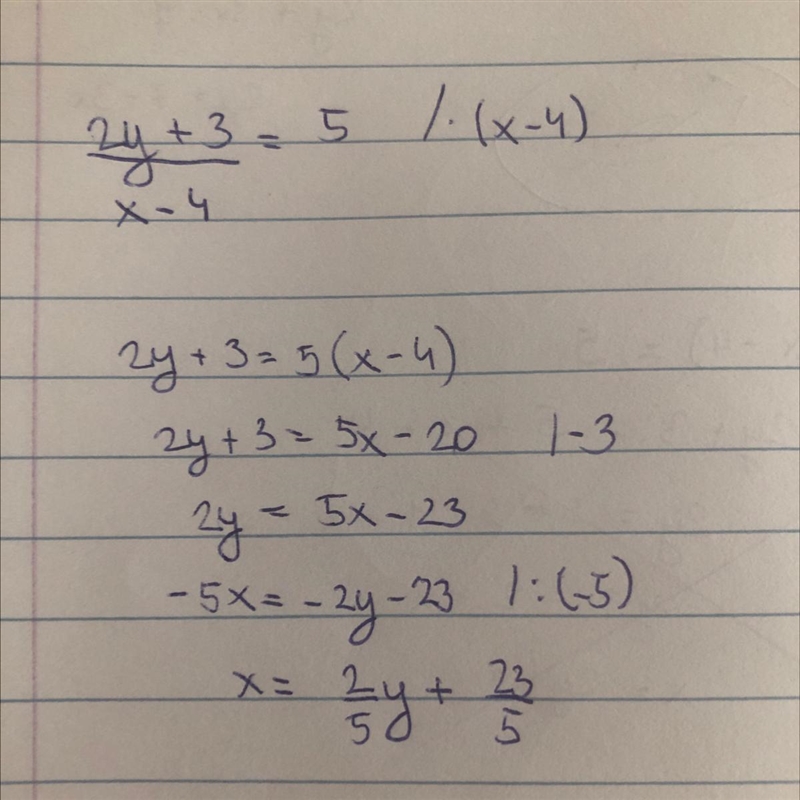 2y + 3 = 5 /· (x-4)
x - 4
2y + 3 = 5(x - 4)
2y + 3 = 5x - 20 | - 3
2y = 5x - 23
-5x = -2y - 23 /: (-5)
x = 2/5 y + 23/5